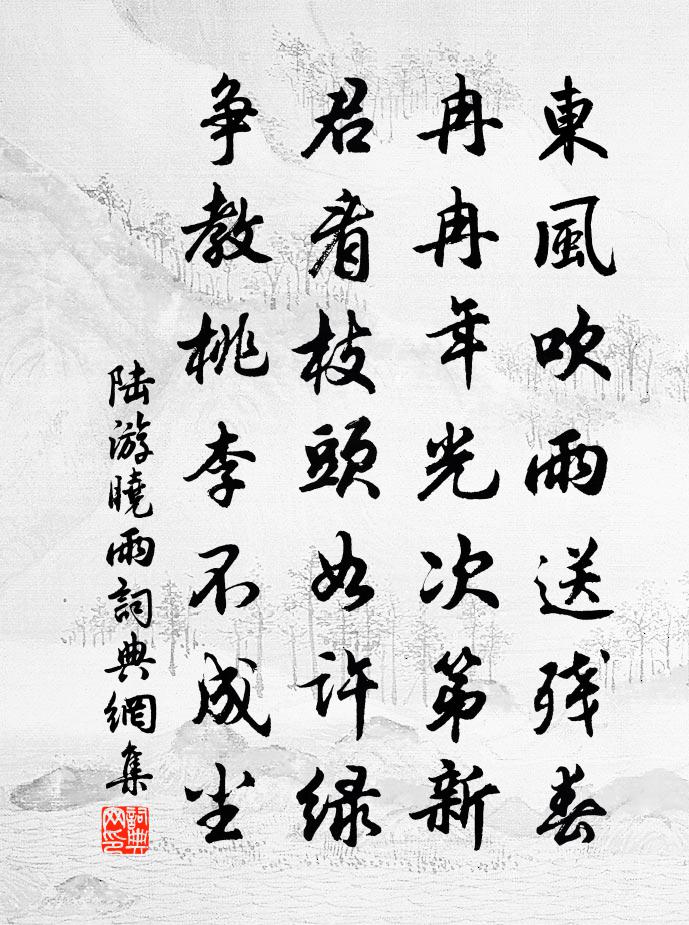 東風吹雨送残春
冉冉年光次第新
君看枝頭如许绿
争教桃李不成尘
陆游曉雨詞典網集
詞典网印